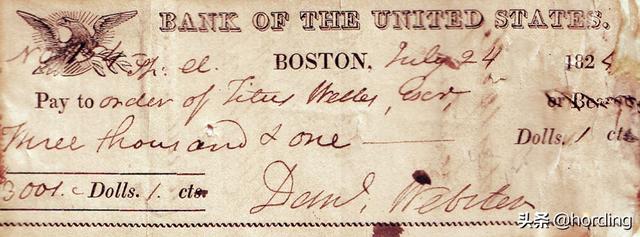 BANK OF THE UNITED STATES.
BOSTON, July 24 1824
Pay to order of Titus Welles, Esqr, or Bearer
Three thousand & one Dolls. 1 cts.
3001. Dolls. 1. cts.
Danl. Webster
头条 @hording